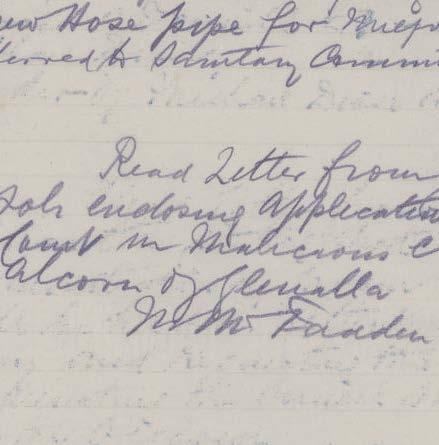 new Hose pipe for
ferred to Sanitary Commi
Read Letter from
Solr enclosing Applicatio
in Malicious C
Alcorn of Glenalla
M McFadden